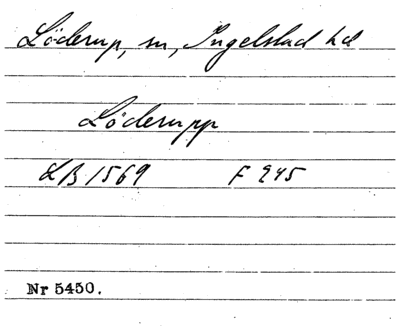 Löderup, sn, Ingelstad hd
Löderupp
LB 1569 F 245
Nr 5450.